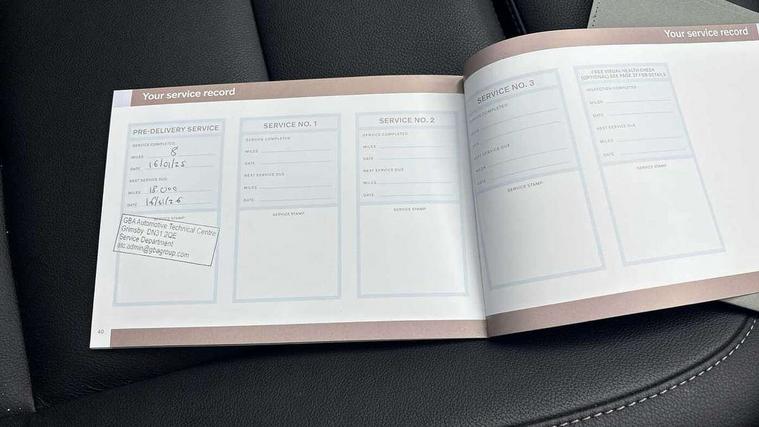 Your service record
PRE-DELIVERY SERVICE
SERVICE COMPLETED
MILES 8
DATE 16/01/25
NEXT SERVICE DUE
MILES 18 000
DATE 16/01/26
SERVICE STAMP
GBA Automotive Technical Centre
Grimsby DN31 2QE
Service Department
atc.admin@gbagroup.com
SERVICE NO. 1
SERVICE COMPLETED
MILES
DATE
NEXT SERVICE DUE
MILES
DATE
SERVICE STAMP
SERVICE NO. 2
SERVICE COMPLETED
MILES
DATE
NEXT SERVICE DUE
MILES
DATE
SERVICE STAMP
40
Your service record
SERVICE NO. 3
SERVICE COMPLETED
MILES
DATE
NEXT SERVICE DUE
MILES
DATE
SERVICE STAMP
FREE VISUAL HEALTH CHECK
(OPTIONAL) SEE PAGE 37 FOR DETAILS
INSPECTION COMPLETED
MILES
DATE
NEXT SERVICE DUE
MILES
DATE
SERVICE STAMP